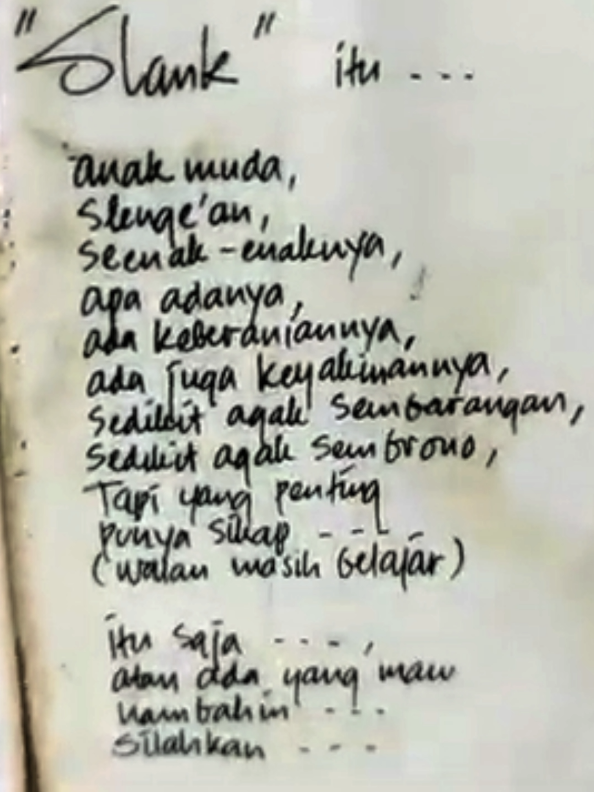 "Slank" itu ...
anak muda,
Slenge'an,
Seenak-enaknya,
apa adanya,
ada keberaniannya,
ada juga keyakinannya,
Sedikit agak sembarangan,
Sedikit agak sembrono,
Tapi yang penting
punya sikap ----
(walau masih belajar)
itu saja ----,
atau ada yang mau
nambahin ---
silahkan ---